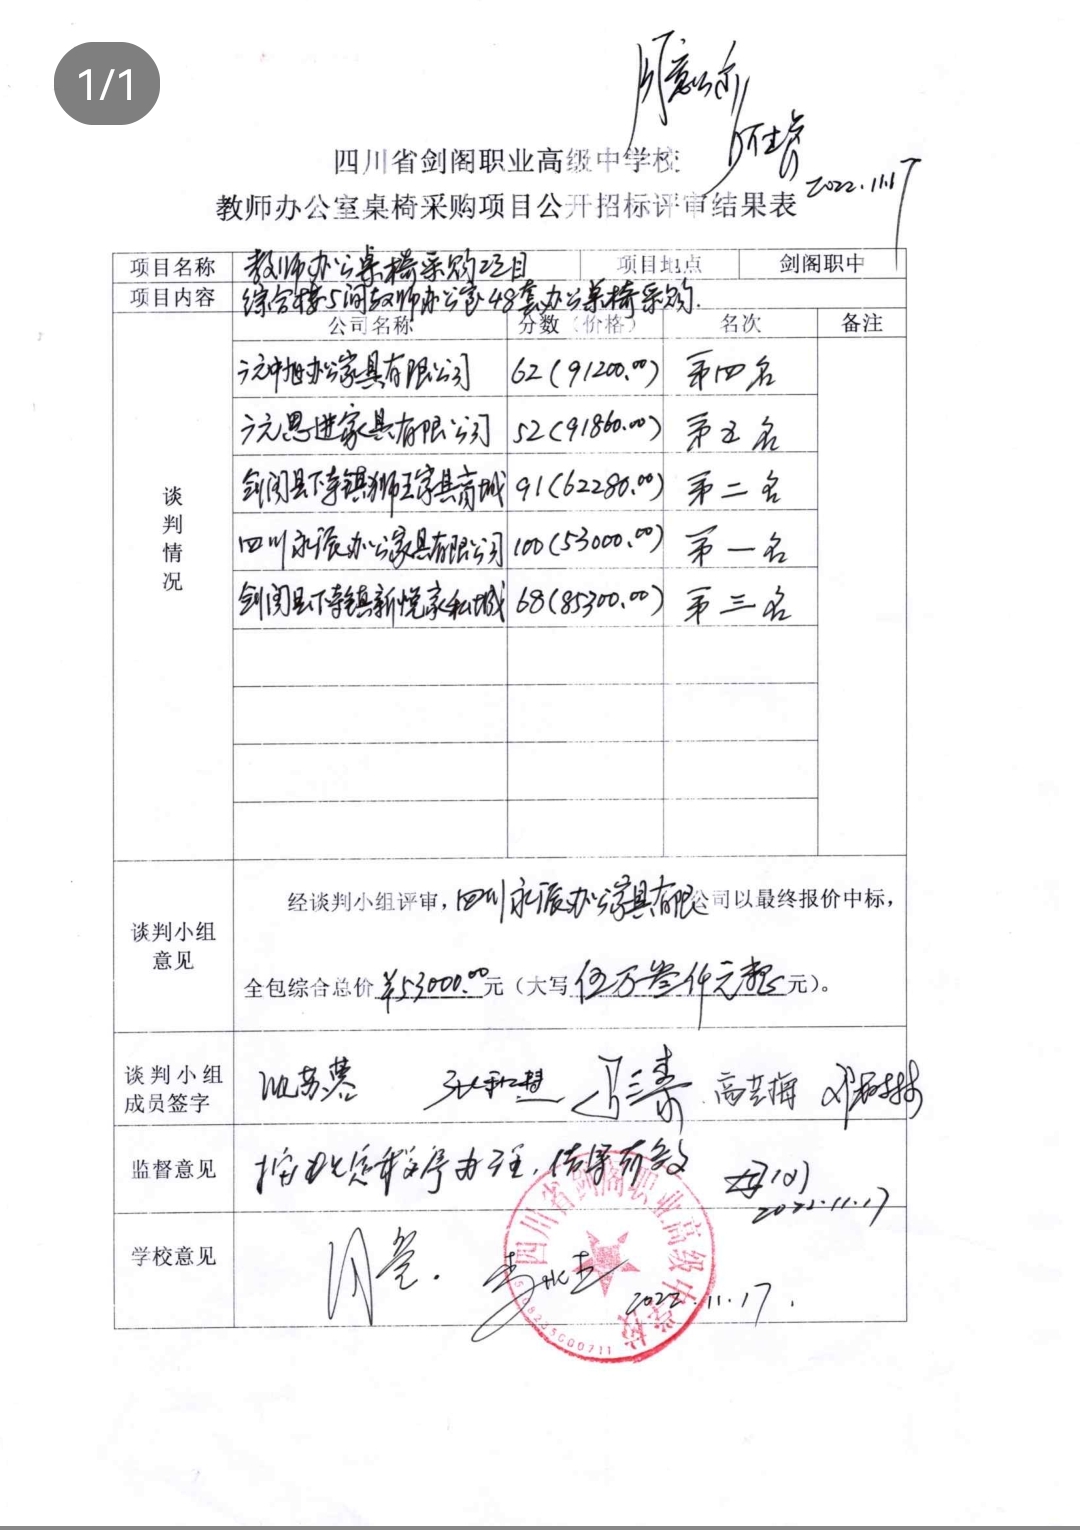 1/1
同意公示
2022.11.17
四川省剑阁职业高级中学校
教师办公室桌椅采购项目公开招标评审结果表
项目名称 教师办公桌椅采购项目 项目地点 剑阁职中
项目内容 综合楼5间教师办公室48套办公桌椅采购.
谈判情况 公司名称 分数（价格） 名次 备注
广元中旭办公家具有限公司 62(91200.00) 第四名
广元思进家具有限公司 52(91860.00) 第五名
剑阁县下寺镇狮王家具商城 91(62280.00) 第二名
四川永辰办公家具有限公司 100(53000.00) 第一名
剑阁县下寺镇新悦家私城 68(85300.00) 第三名
谈判小组意见 经谈判小组评审，四川永辰办公家具有限公司以最终报价中标，
全包综合总价¥53000.00元（大写 伍万叁仟元整元）。
谈判小组
成员签字
监督意见 2022.11.17
学校意见 同意. 2022.11.17.
四川省剑阁职业高级中学校